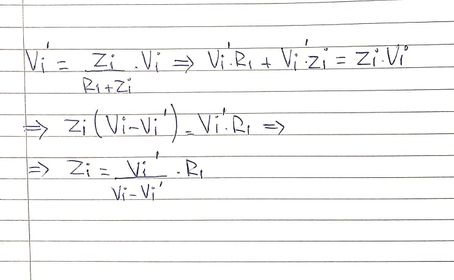 Vi' = Zi/(R1+Zi) . Vi ⇒ Vi'.R1 + Vi'.Zi = Zi.Vi
⇒ Zi(Vi-Vi') = Vi'.R1 ⇒
⇒ Zi = Vi'/(Vi-Vi') . R1